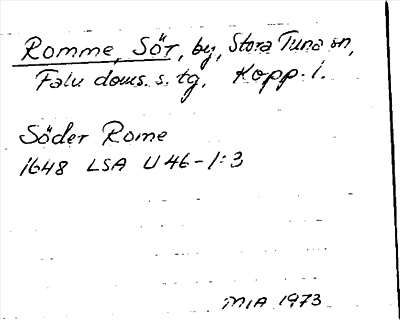 Romme, Sör, by, Stora Tuna sn,
Falu doms. s. tg, Kopp. l.
Söder Rome
1648 LSA U46-1:3
MIA 1973